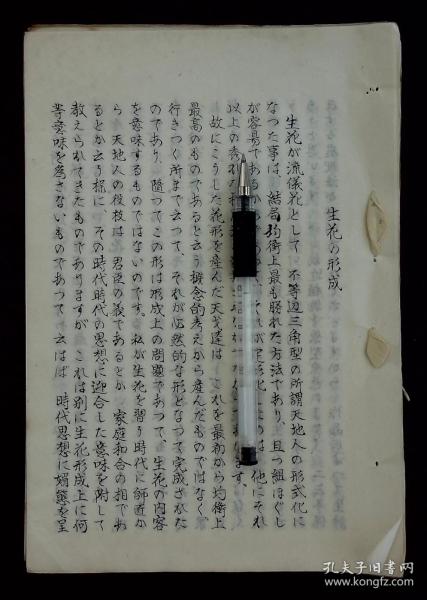 生花の形成
生花が流儀花として、不等辺三角型の所謂天地人の形式化に
なつた事は、結局均衡上最も勝れた方法であり、且つ組ほぐし
が容易であるか　　　　　　　　　　　　　　他にそれ
以上の　　　　　　　　　　　　　　　　　　ます。
故にこうした花形を産んだ天才達は、これを最初から均衡上
最高のものであると云う概念的考えから産んだものではなく
行きつく所まで云つて、それが必然的な形となつて完成された
のであり、随つてこの形は形成上の問題であつて、生花の内容
を意味するものではないのです。私が生花を習う時代に師匠か
ら、天地人の役枝は、君臣の義であるとか、家庭和合の相であ
るとか云う様に、その時代時代の思想に迎合した意味を附して
教えられてきたものでありますが、これは別に生花形成上に何
等意味を為さないものであつて、云はば、時代思想に媚態を呈
孔夫子旧书网
www.kongfz.com